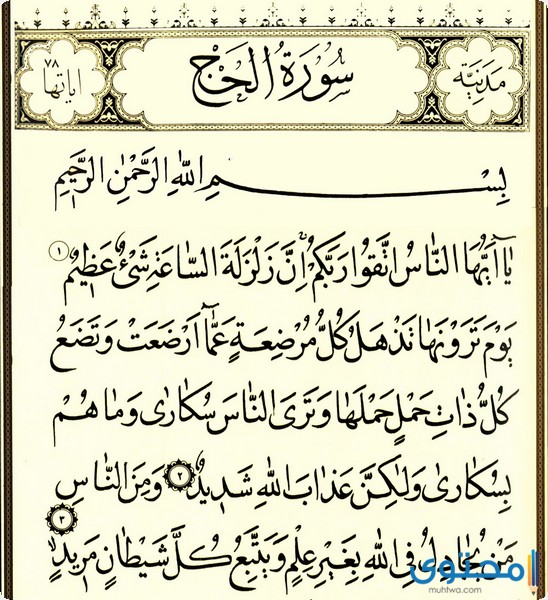 مدنية
سُورَةُ الحَجّ
اياتها ٧٨
بِسْمِ اللهِ الرَّحْمٰنِ الرَّحِيمِ
يَٓا اَيُّهَا النَّاسُ اتَّقُوا رَبَّكُمْۚ اِنَّ زَلْزَلَةَ السَّاعَةِ شَيْءٌ عَظِيمٌ ١
يَوْمَ تَرَوْنَهَا تَذْهَلُ كُلُّ مُرْضِعَةٍ عَمَّٓا اَرْضَعَتْ وَتَضَعُ
كُلُّ ذَاتِ حَمْلٍ حَمْلَهَا وَتَرَى النَّاسَ سُكَارٰى وَمَا هُمْ
بِسُكَارٰى وَلٰكِنَّ عَذَابَ اللهِ شَدِيدٌ ٢ وَمِنَ النَّاسِ
مَنْ يُجَادِلُ فِي اللهِ بِغَيْرِ عِلْمٍ وَيَتَّبِعُ كُلَّ شَيْطَانٍ مَرِيدٍ ٣
محتوى
muhtwa.com